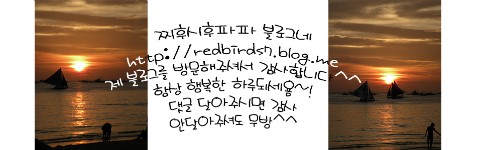 찌후시후파파 블로그네
http://redbirds7.blog.me
제 블로그를 방문해주셔서 감사합니다.^^
항상 행복한 하루되세용~!
댓글 달아주시면 감사
안달아주셔도 무방^^